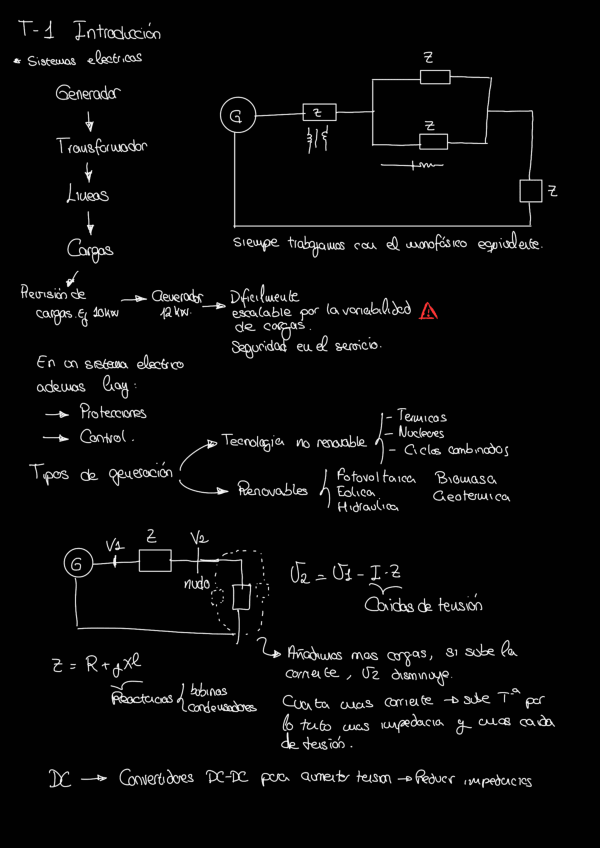 T-1 Introducción
* Sistemas electricos
Generador
Transformador
Lineas
Cargas
G
Z
Z
Z
Z
siempe trabajamos con el monofásico equivalente.
Previsión de
cargas. Ej 10kw
Generador
12kw.
Dificilmente
escalable por la variabilidad
de cargas.
Seguridad en el servicio.
En un sistema electrico
ademas hay:
Protecciones
Control.
Tipos de generación
Tecnologia no renovable
- Termicas
- Nucleares
- Ciclos combinados
Renovables
Fotovoltaica Biomasa
Eolica Geotermica
Hidraulica
G
V1
Z
V2
nudo
U2 = U1 - I·Z
Caidas de tensión
Z = R + jXl
Reactacias
bobinas
condensadores
Añadimos mas cargas, si sube la
corriente, U2 disminuye.
Cuanta mas corriente → sube Tª por
lo tanto mas impedacia y mas caida
de tensión.
DC → Convertidores DC-DC para aumentar tension → Reducir impedacias